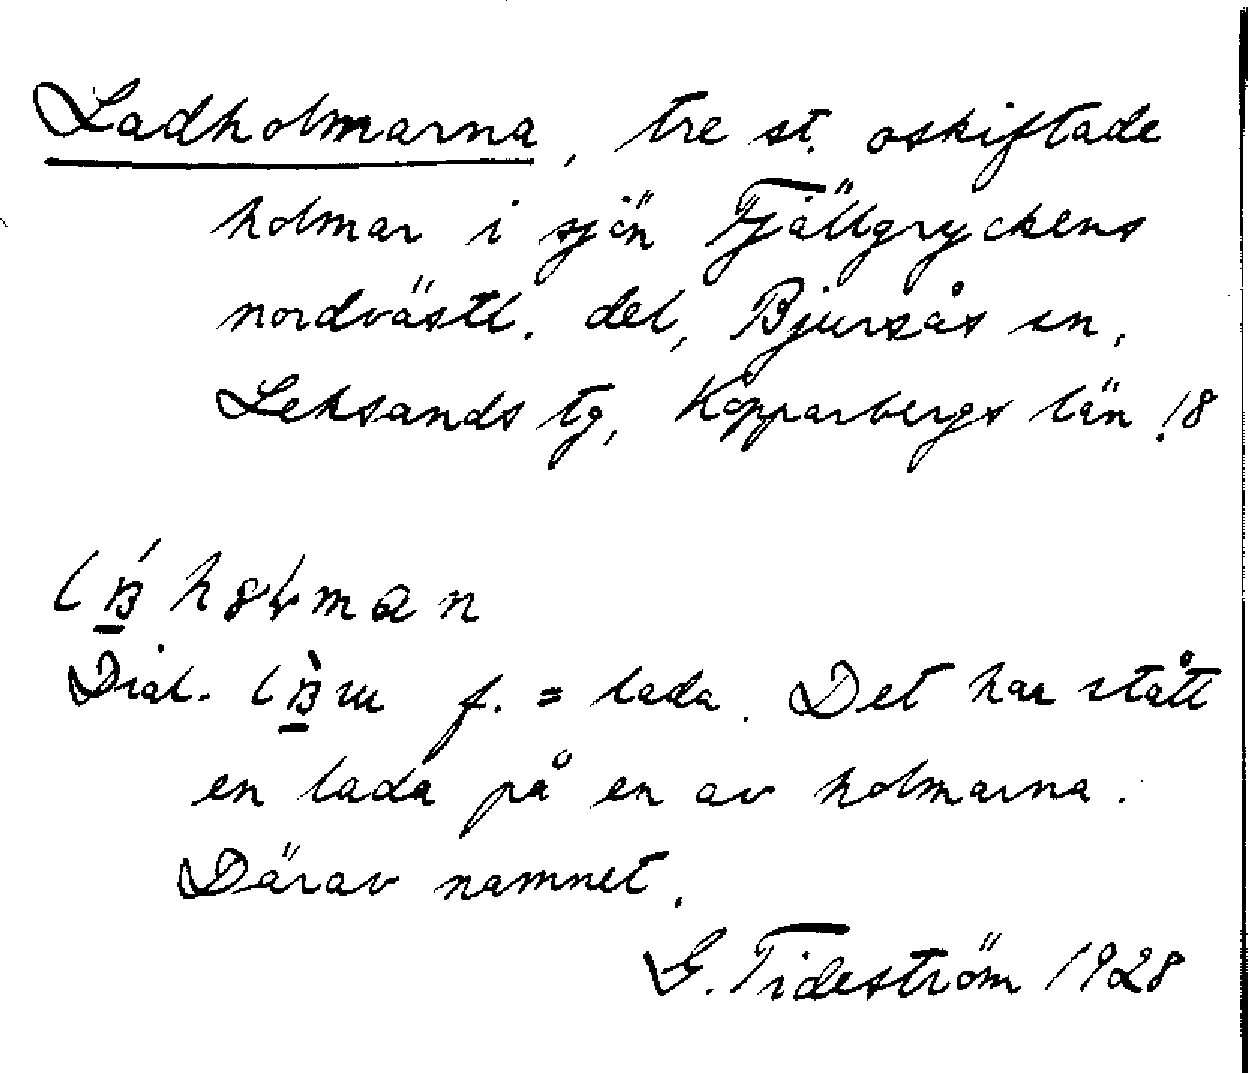 Ladholmarna, tre st. oskiftade
holmar i sjön Fjällgryckens
nordvästl. del, Bjursås sn,
Leksands tg, Kopparbergs län !8
Dial. f. = lada. Det har stått
en lada på en av holmarna.
Därav namnet.
G. Tideström 1928